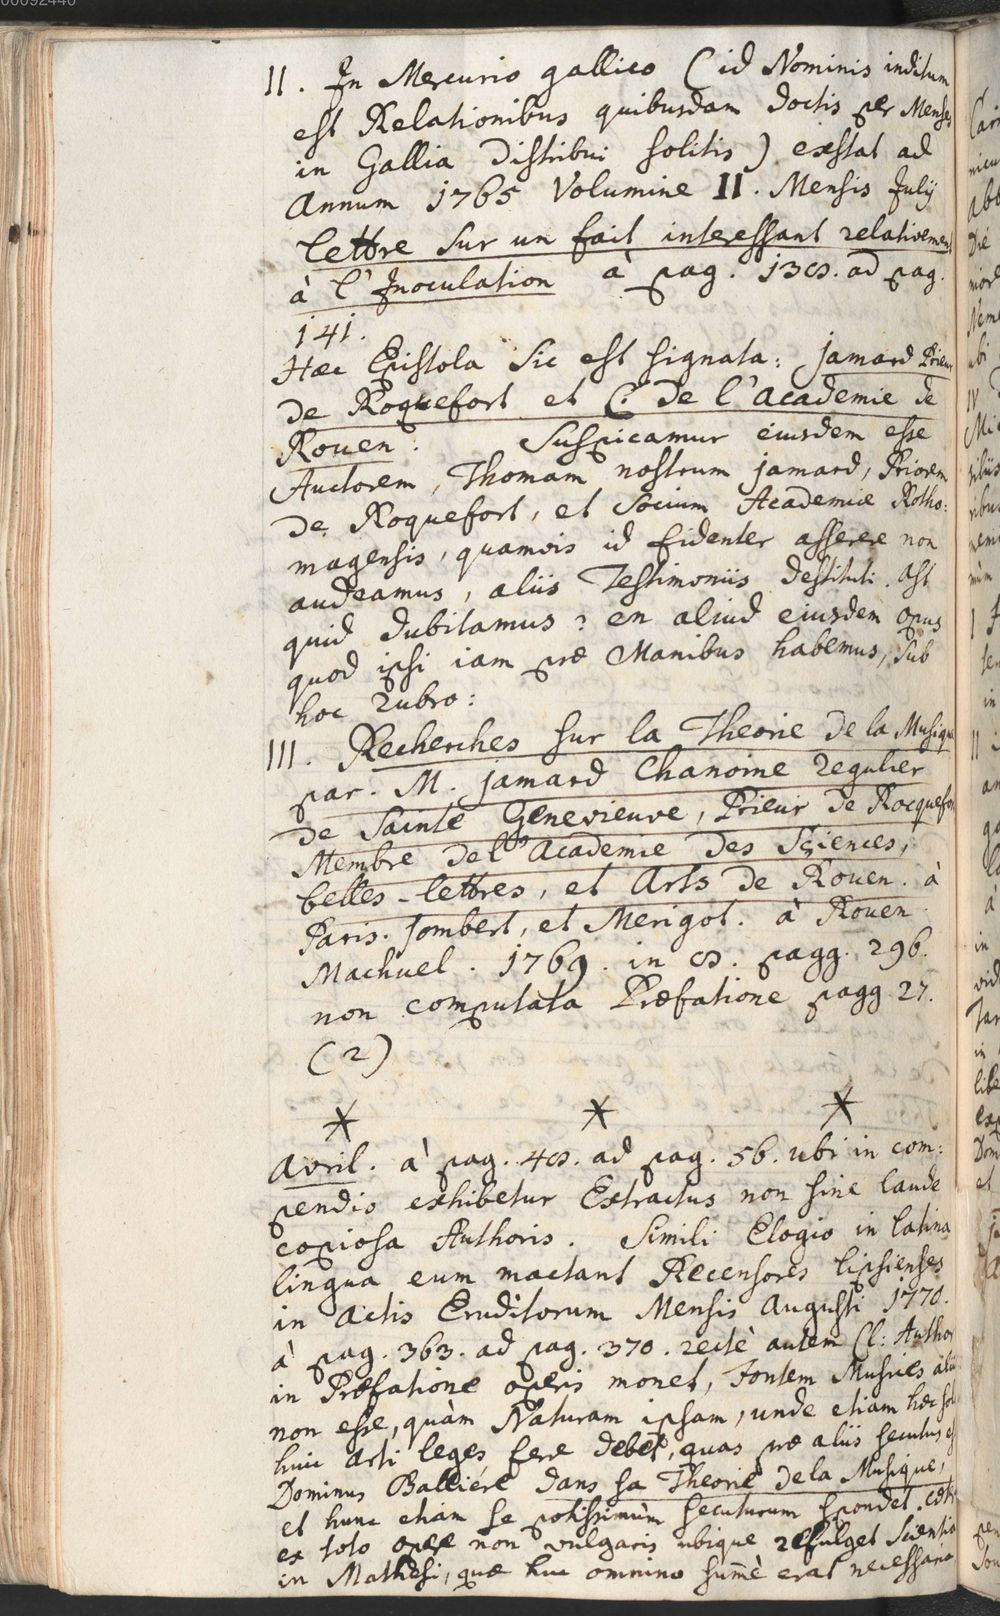 00092440
II. In Mercurio gallico (id Nominis inditum
est Relationibus quibusdam doctis per Menses
in Gallia distribui solitis) exstat ad
Annum 1765 Volumine II. Mensis July
lettre sur un fait interessant relativement
à l'Inoculation à pag. 138. ad pag.
141.
Hæc Epistola sic est signata: jamard Prieur
de Roquefort et C. de l'academie de
Rouen. Suspicamur eiusdem esse
Auctorem, Thomam nostrum jamard, Priorem
de Roquefort, et Socium Academiæ Rotho:
magensis, quamvis id fidenter asserere non
audeamus, aliis Testimoniis destituti. Ast
quid dubitamus? en aliud eiusdem opus
quod ipsi iam præ Manibus habemus, sub
hoc rubro:
III. Recherches sur la Theorie de la Musique
par. M. jamard Chanoine regulier
de Sainte Genevieuve, Prieur de Rocquefort
Membre de l'Academie des Sciences,
belles-lettres, et Arts de Rouen. à
Paris. Jombert, et Merigot. à Rouen.
Machuel. 1769. in 8. pagg. 296.
non computata Præfatione pagg 27.
(2)
* * *
avril. à pag. 48. ad pag. 56. ubi in com:
pendio exhibetur Extractus non sine laude
copiosa Authoris. Simili Elogio in latina
lingua eum mactant Recensores lipsienses
in Actis Eruditorum Mensis Augusti 1770.
à pag. 363. ad pag. 370. rectè autem Cl: Author
in Præfatione operis monet, Fontem Musices
non esse, quàm Naturam ipsam, unde etiam hæc
huic arti leges fere debet, quas præ aliis secutus
Dominus Balliére dans sa Theorie de la Musique,
et hunc etiam se potissimùm secuturum spondet.
ex toto opere non vulgaris ubique refulget Scientia
in Mathesi, quæ huc omnino summè erat necessaria